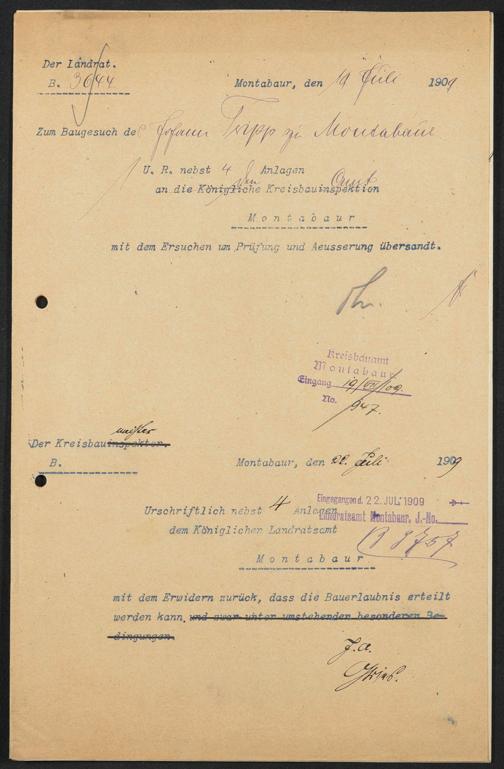 Der Landrat.
B. 3644
Montabaur, den 19 Juli 1909
Zum Baugesuch des Johann Tripp zu Montabaur
U. R. nebst 4 Anlagen
an die Königliche Kreisbauinspektion
Amt
Montabaur
mit dem Ersuchen um Prüfung und Aeusserung übersandt.
Kreisbauamt
Montabaur
Eingang 19/VII/09.
No. 947.
meister
Der Kreisbauinspektor.
B.
Montabaur, den 22. Juli 1909
Eingegangen d. 22. JUL 1909
Urschriftlich nebst 4 Anlagen
Landratsamt Montabaur. J.-No.
dem Königlicher Landratsamt
B 3757
Montabaur
mit dem Erwidern zurück, dass die Bauerlaubnis erteilt
werden kann, und zwar unter umstehender besonderen Be-
dingungen.
J. A.